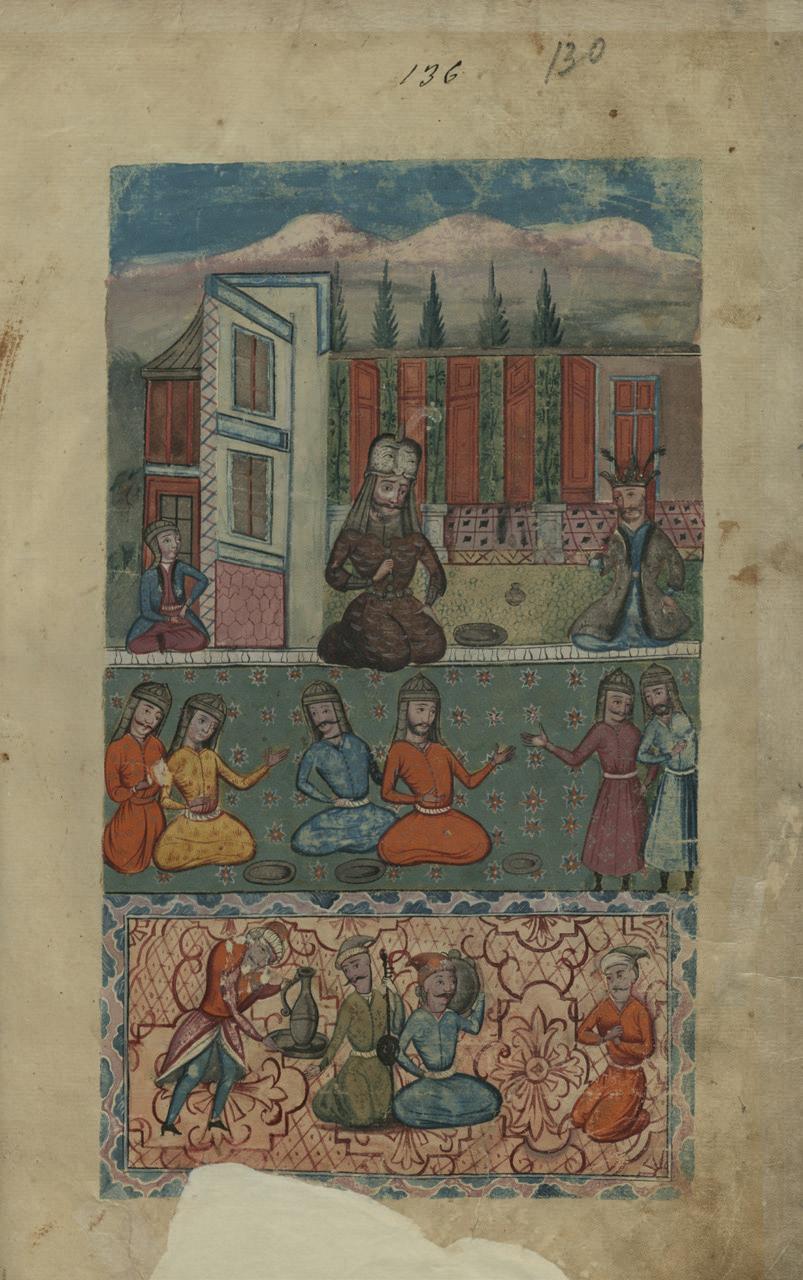 136
130